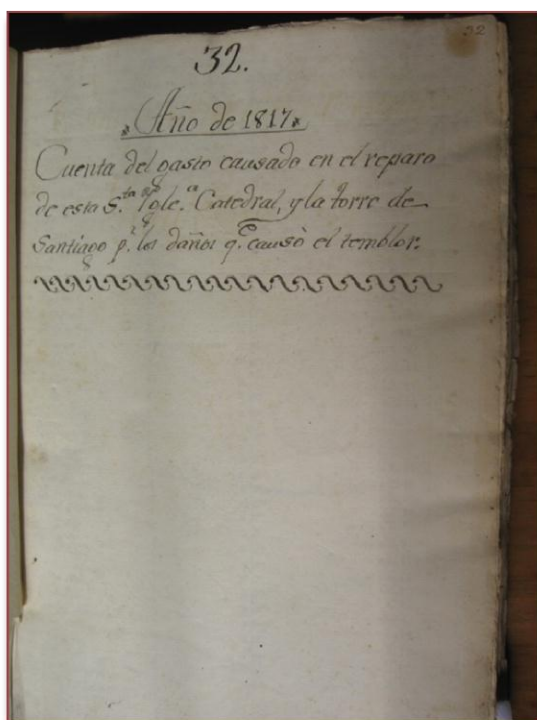 32
32.
Año de 1817
Cuenta del gasto causado en el reparo
de esta S.ta Igle.ª Catedral, y la torre de
Santiago p.r los daños q.e causò el temblor.